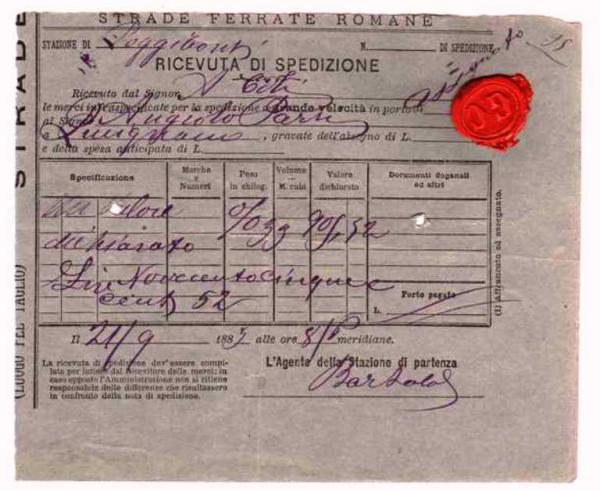 STRADE FERRATE ROMANE
STAZIONE DI Poggibonsi N. DI SPEDIZIONE
RICEVUTA DI SPEDIZIONE
Ricevuto dal Signor
le merci infraspecificate per la spedizione a grande velocità in porto
al Sign
a , gravate dell'assegno di L.
e della spesa anticipata di L.
Specificazione Marche e Numeri Peso in chilog. Volume M. cubi Valore dichiarato Documenti doganali ed altri
valore 0/033 905,52
dichiarato
Lire Novecentocinque
cent 52
Porto pagato
L.
(1) Affrancato od assegnato.
Il 21/9 188 alle ore meridiane.
La ricevuta di spedizione dev'essere compi-
lata per intiero dal Ricevitore delle merci; in
caso opposto l'Amministrazione non si ritiene
responsabile delle differenze che risultassero
in confronto della nota di spedizione.
L'Agente della Stazione di partenza
STRADE
(LUOGO PEL TAGLIO)